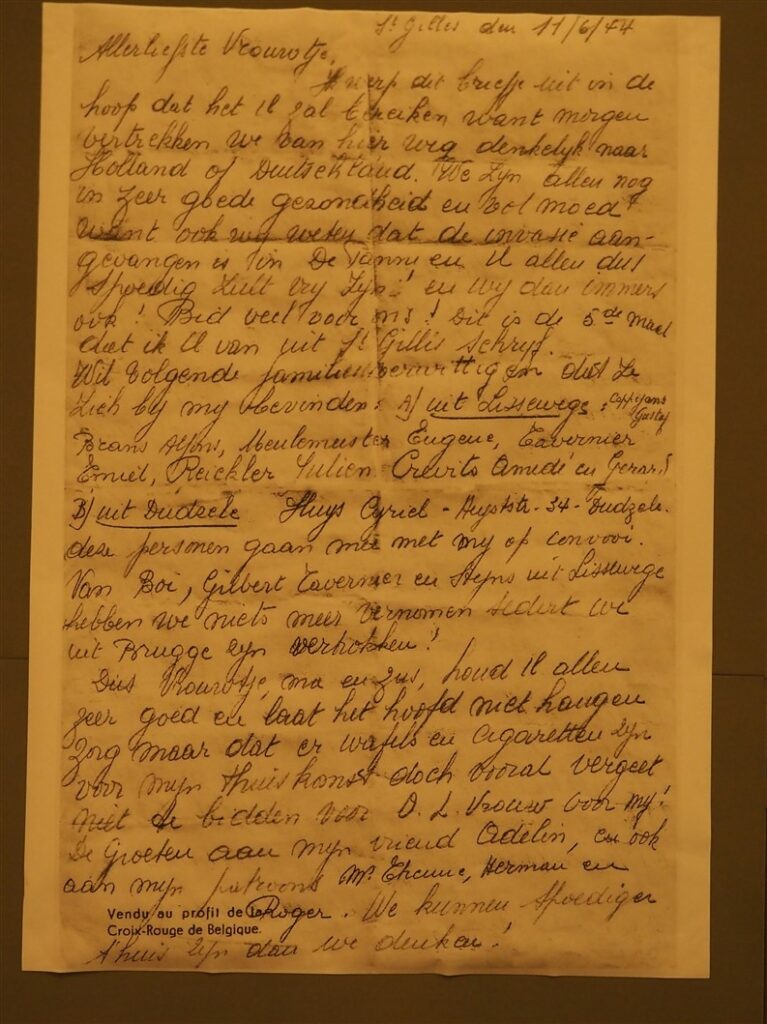 St Gilles den 11/6/44
Allerliefste Vrouwtje,
Ik werp dit briefje uit in de
hoop dat het U zal bereiken want morgen
vertrekken we van hier weg denkelyk naar
Holland of Duitschland. We zyn allen nog
in zeer goede gezondheid en vol moed
want ook wy weten dat de invasie aan-
gevangen is en U allen dus
spoedig zult vry zyn! en wy dan immers
ook! Bid veel voor ons! Dit is de 5de maal
dat ik U van uit St Gillis schryf.
Wil volgende families verwittigen dat ze
zich by my bevinden: A) uit Lissewege: Gustaf
Brans Alfons, Meulemeester Eugene, Tavernier
Emiel, Reickler Julien Crevits Amedé en Gerard
B) uit Dudzele Huys Cyriel - Heyststr - 34 - Dudzele.
deze personen gaan mee met my op convooi.
Van Boi, Gilbert Tavernier en Styns uit Lissewege
hebben we niets meer vernomen sedert we
uit Brugge zyn vertrokken!
Dus Vrouwtje, ma en zus, houd U allen
zeer goed en laat het hoofd niet hangen
zorg maar dat er wafels en cigaretten zyn
voor myn thuiskomst doch vooral vergeet
niet te bidden voor O. L. Vrouw voor my!
De Groeten aan myn vriend Adelin, en ook
aan myn patroons Mr Etienne, Herman en
Roger. We kunnen spoediger
Vendu au profit de la
Croix-Rouge de Belgique.
thuis zyn dan we denken!